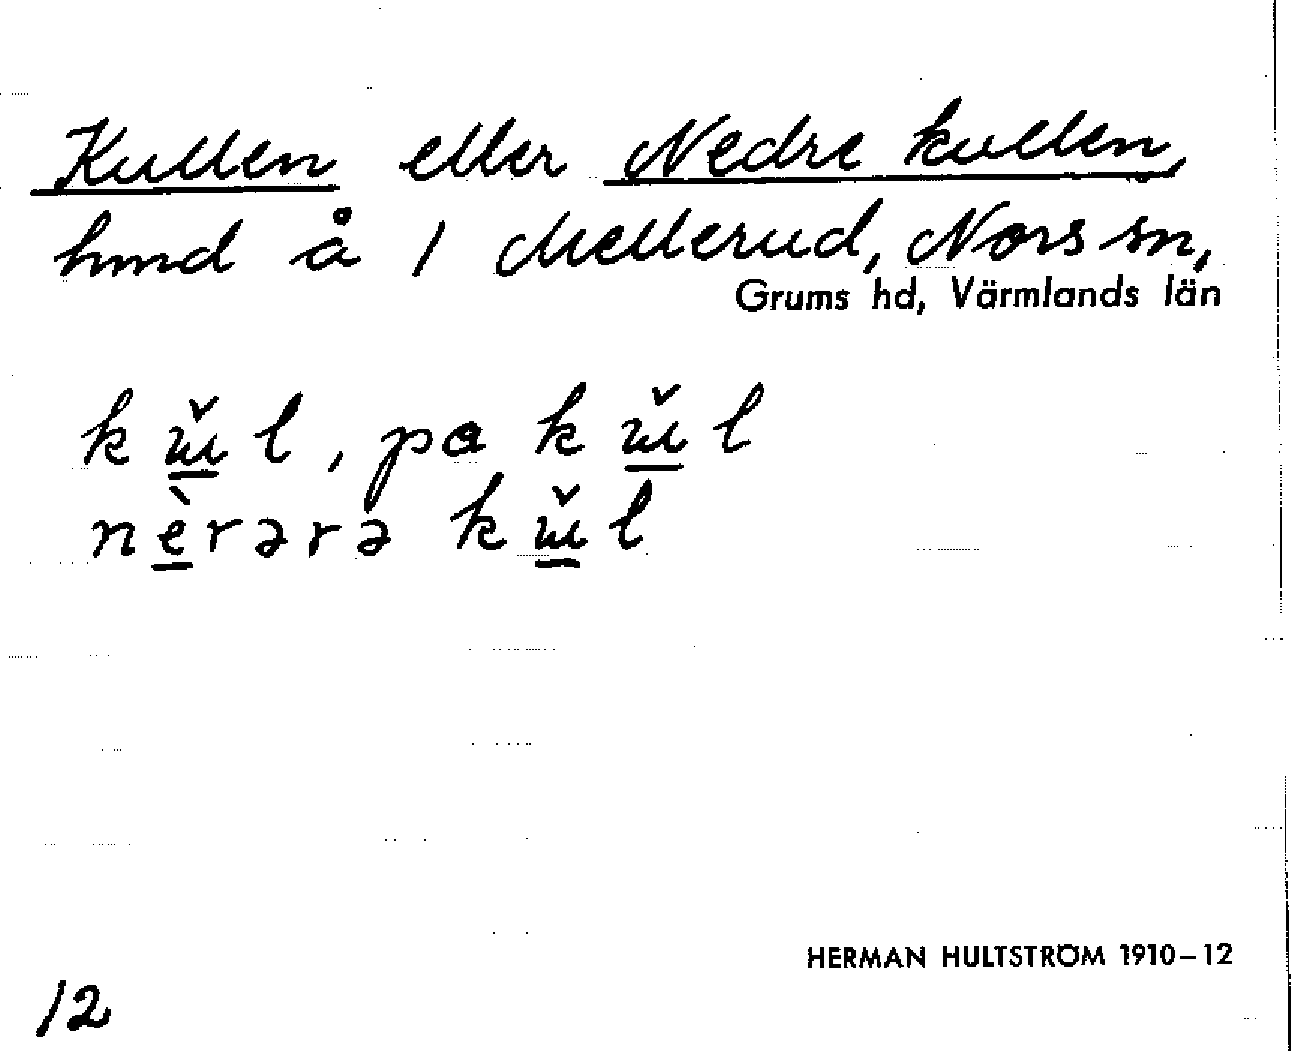 Kullen eller Nedre kullen,
hmd å 1 Mellerud, Nors sn,
Grums hd, Värmlands län
k ɯ̲̌ l, pa k ɯ̲̌ l
n è̲ r ə r ə k ɯ̲̌ l
HERMAN HULTSTRÖM 1910–12
12